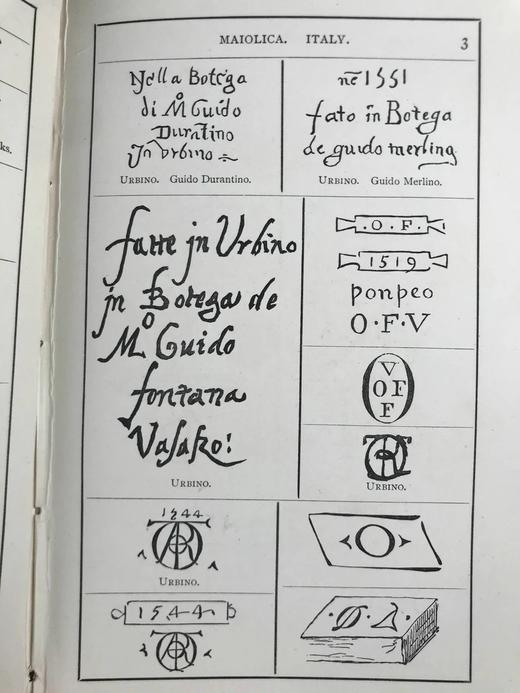 MAIOLICA. ITALY.
3
Nella Botega
di M Guido
Durātino
Jn Vrbino
URBINO. Guido Durantino.
nē 1551
fato in Botega
de guido merlingo
URBINO. Guido Merlino.
fatte jn Urbino
jn Botega de
Mo Guido
fontana
Vasaro!
URBINO.
·O·F·
1519
ponpeo
O·F·V
V
OFF
F
URBINO.
1544
URBINO.
1544
O
ks.